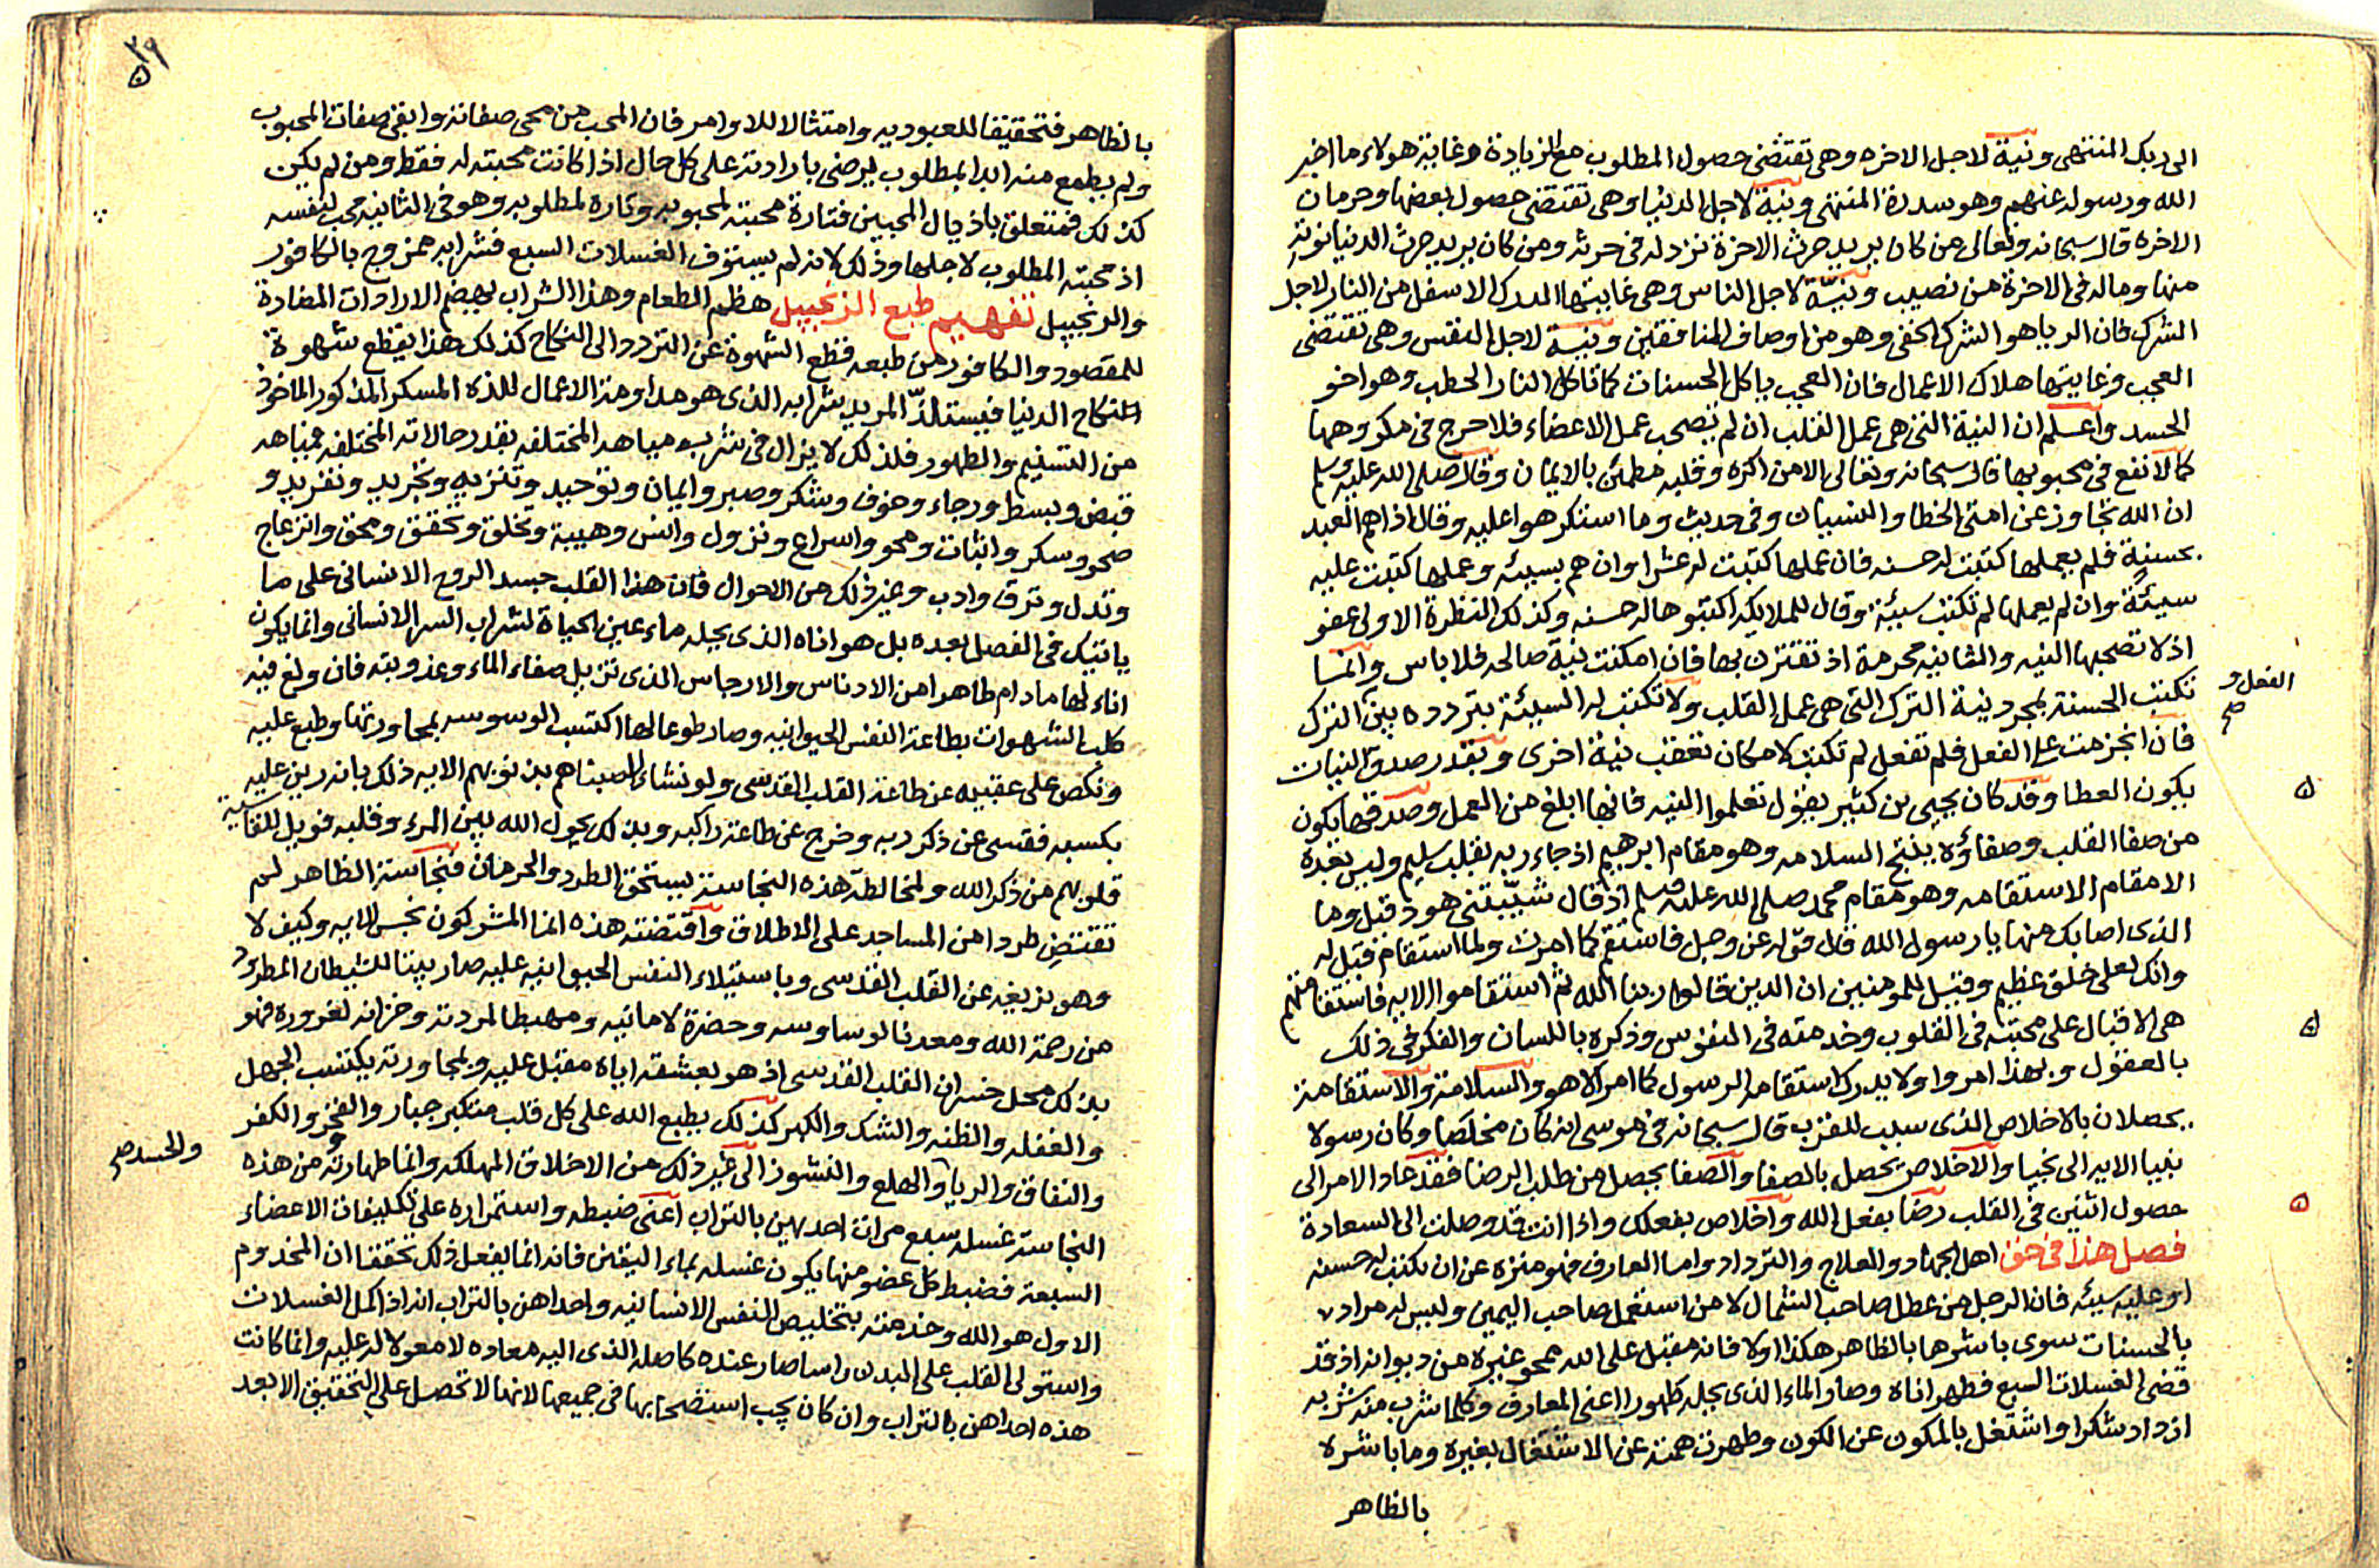 الى ربك المنتهى ونية لاجل الاخره وهى تقتضى حصول المطلوب مع الزيادة وغاية هولاء ما اخبر
الله ورسوله عنهم وهو سدرة المنتهى ونية لاجل الدنيا وهى تقتضى حصول بعضها وحرمان
الاخره قال سبحانه وتعالى من كان يريد حرث الاخرة نزد له فى حرثه ومن كان يريد حرث الدنيا نوته
منها وما له فى الاخرة من نصيب ونيّة لاجل الناس وهى غايتها الدرك الاسفل من النار لاجل
الشرك فان الريا هو الشرك الخفى وهو من اوصاف المنافقين ونية لاجل النفس وهى تقتضى
العجب وغايتها هلاك الاعمال فان العجب ياكل الحسنات كما تاكل النار الحطب وهو اخو
الحسد واعلم ان النية التى هى عمل القلب ان لم تصحب عمل الاعضاء فلا حرج فى مكروهها
كما لا نفع فى محبوبها قال سبحانه وتعالى الا من اكره وقلبه مطمئن بالايمان وقال صلى الله عليه وسلم
ان الله تجاوز عن امتى الخطا والنسيان وفى حديث وما استكرهوا عليه وقال اذا هم العبد
بحسنة فلم يعملها كتبت له حسنه فان عملها كتبت له عشرا وان هم بسيئه وعملها كتبت عليه
سيئة وان لم يعملها لم تكتب سيئة وقال للملايكه اكتبوها له حسنه وكذلك النظرة الاولى عفو
اذ لا تصحبها النيه والثانيه محرمة اذ تقترن بها فان امكنت نية صالحه فلا باس وانما
تكتب الحسنة بمجرد نية الترك التى هى عمل القلب ولا تكتب له السيئة بتردده بين الترك
الفعل و
صح
فان انجزمت على الفعل فلم تفعل لم تكتب لامكان تعقب نية اخرى وبقدر صدق النيات
يكون العطا وقد كان يحيى بن كثير يقول تعلموا النيه فانها ابلغ من العمل وصدقها يكون
من صفا القلب وصفاؤه ينتج السلامه وهو مقام ابرهيم اذ جاء ربه بقلب سليم وليس بعده
الا مقام الاستقامه وهو مقام محمد صلى الله عليه وسلم اذ قال شيّبتنى هود قيل وما
الذى اصابك منها يا رسول الله قال قوله عز وجل فاستقم كما امرت ولما استقام قيل له
وانك لعلى خلق عظيم وقيل للمومنين ان الذين قالوا ربنا الله ثم استقاموا الايه فاستقامتهم
هى الاقبال على محبته فى القلوب وخدمته فى النفوس وذكره باللسان والفكر فى ذلك
بالعقول وبهذا امروا ولا يدرك استقامة الرسول كما امر الا هو والسلامة والاستقامة
يحصلان بالاخلاص الذى سبب للقرب قال سبحانه فى موسى انه كان مخلصا وكان رسولا
نبيا الايه الى نجيا والاخلاص يحصل بالصفا والصفا يحصل من طلب الرضا فقد عاد الامر الى
حصول اثنين فى القلب رضا بفعل الله واخلاص بفعلك واذا انت قد وصلت الى السعادة
فصل هذا فى حق اهل الجهاد والعلاج والترداد واما العارف فهو منزه عن ان تكتب له حسنه
او عليه سيئه فان الرجل من عطل صاحب الشمال لا من استعمل صاحب اليمين وليس له مراد
بالحسنات سوى باشرها بالظاهر هكذا اولا فانه مقبل على الله محو غيره من ديوانه اذ قد
قضى الغسلات السبع فطهر اناه وصار الماء الذى يحله طهورا اعنى المعارف وكلما شرب منه شربه
ازداد شكرا واشتغل بالمكون عن الكون وطهرت همته عن الاشتغال بغيره وما باشره
بالظاهر
٣٩
بالظاهر فتحقيقا للعبوديه وامتثالا للاوامر فان المحب من محى صفاته وابقى صفات المحبوب
ولم يطمع منه ابدا بمطلوب يرضى بارادته على كل حال اذا كانت محبته له فقط ومن لم يكن
كذلك فمتعلق باذيال المحبين فتارة محبته لمحبوبه وتاره لمطلوبه وهو فى الثانيه محب لنفسه
اذ محبته المطلوب لاجلها وذلك لانه لم يستوف الغسلات السبع فشرابه ممزوج بالكافور
والزنجبيل تفهيم طبع الزنجبيل هظم الطعام وهذا الشراب يهضم الارادات المضادة
للمقصود والكافور من طبعه قطع الشهوة عن التردد الى النكاح كذلك هذا يقطع شهوة
النكاح الدنيا فيستلذّ المريد شرابه الذى هو مداومة الاعمال للذه المسكر المذكور الماخوذ
من التسنيم والطهور فلذلك لا يزال فى شرب مياهه المختلفه بقدر حالاته المختلفه فمياهه
قبض وبسط ورجاء وخوف وشكر وصبر وايمان وتوحيد وتنزيه وتجريد وتفريد و
صحو وسكر واثبات ومحو واسراع ونزول وانس وهيبة وتخلق وتحقق ومحق وانزعاج
وتدل وترق وادب وغير ذلك من الاحوال فان هذا القلب جسد الروح الانسانى على ما
ياتيك فى الفصل بعده بل هو اناه الذى يحله ماء عين الحياة لشراب السر الانسانى وانما يكون
اناء لها ما دام طاهرا من الادناس والارجاس الذى تزيل صفاء الماء وعذوبته فان ولغ فيه
كلب الشهوات بطاعة النفس الحيوانيه وصار طوعا لها اكتسب الوسوسه بمجاورتها وطبع عليه
ونكص على عقبيه عن طاعة القلب القدسى ولو نشاء اصبناهم بذنوبهم الايه ذلك بانه رين عليه
بكسبه فقسى عن ذكر ربه وخرج عن طاعة راكبه وبذلك يحول الله بين المرء وقلبه فويل للقاسية
قلوبهم من ذكر الله ولمخالطة هذه النجاسة يستحق الطرد والحرمان فنجاسة الظاهر لم
تقتض طردا من المساجد على الاطلاق واقتضته هذه انما المشركون نجس الايه وكيف لا
وهو بزيغه عن القلب القدسى وباستيلاء النفس الحيوانيه عليه صار بيتا للشيطان المطرود
من رحمة الله ومعدنا لوساوسه وحضرة لامانيه ومهبطا لمردته وخزانه لغروره فهو
بذلك محل خسران القلب القدسى اذ هو بعشقه اياه مقبل عليه وبمجاورته يكتسب الجهل
والغفله والظنه والشك والكبر كذلك يطبع الله على كل قلب متكبر جبار والفخر والكفر
والحسد صح
والنفاق والريا والهلع والنشوز الى غير ذلك من الاخلاق المهلكه وانما طهارته من هذه
النجاسة غسله سبع مرات احديهن بالتراب اعنى ضبطه واستمراره على تكليفات الاعضاء
السبعة فضبط كل عضو منها يكون غسله بماء اليقين فانه انما يفعل ذلك تحققا ان المخدوم
الاول هو الله وخدمته بتخليص النفس الانسانيه واحداهن بالتراب انه اذا كمل الغسلات
واستولى القلب على البدن راسا صار عنده كاصله الذى اليه معاده لا معولا له عليه وانما كانت
هذه احداهن بالتراب وان كان يجب استصحابها فى جميعها لانها لا تحصل على التحقيق الا بعد